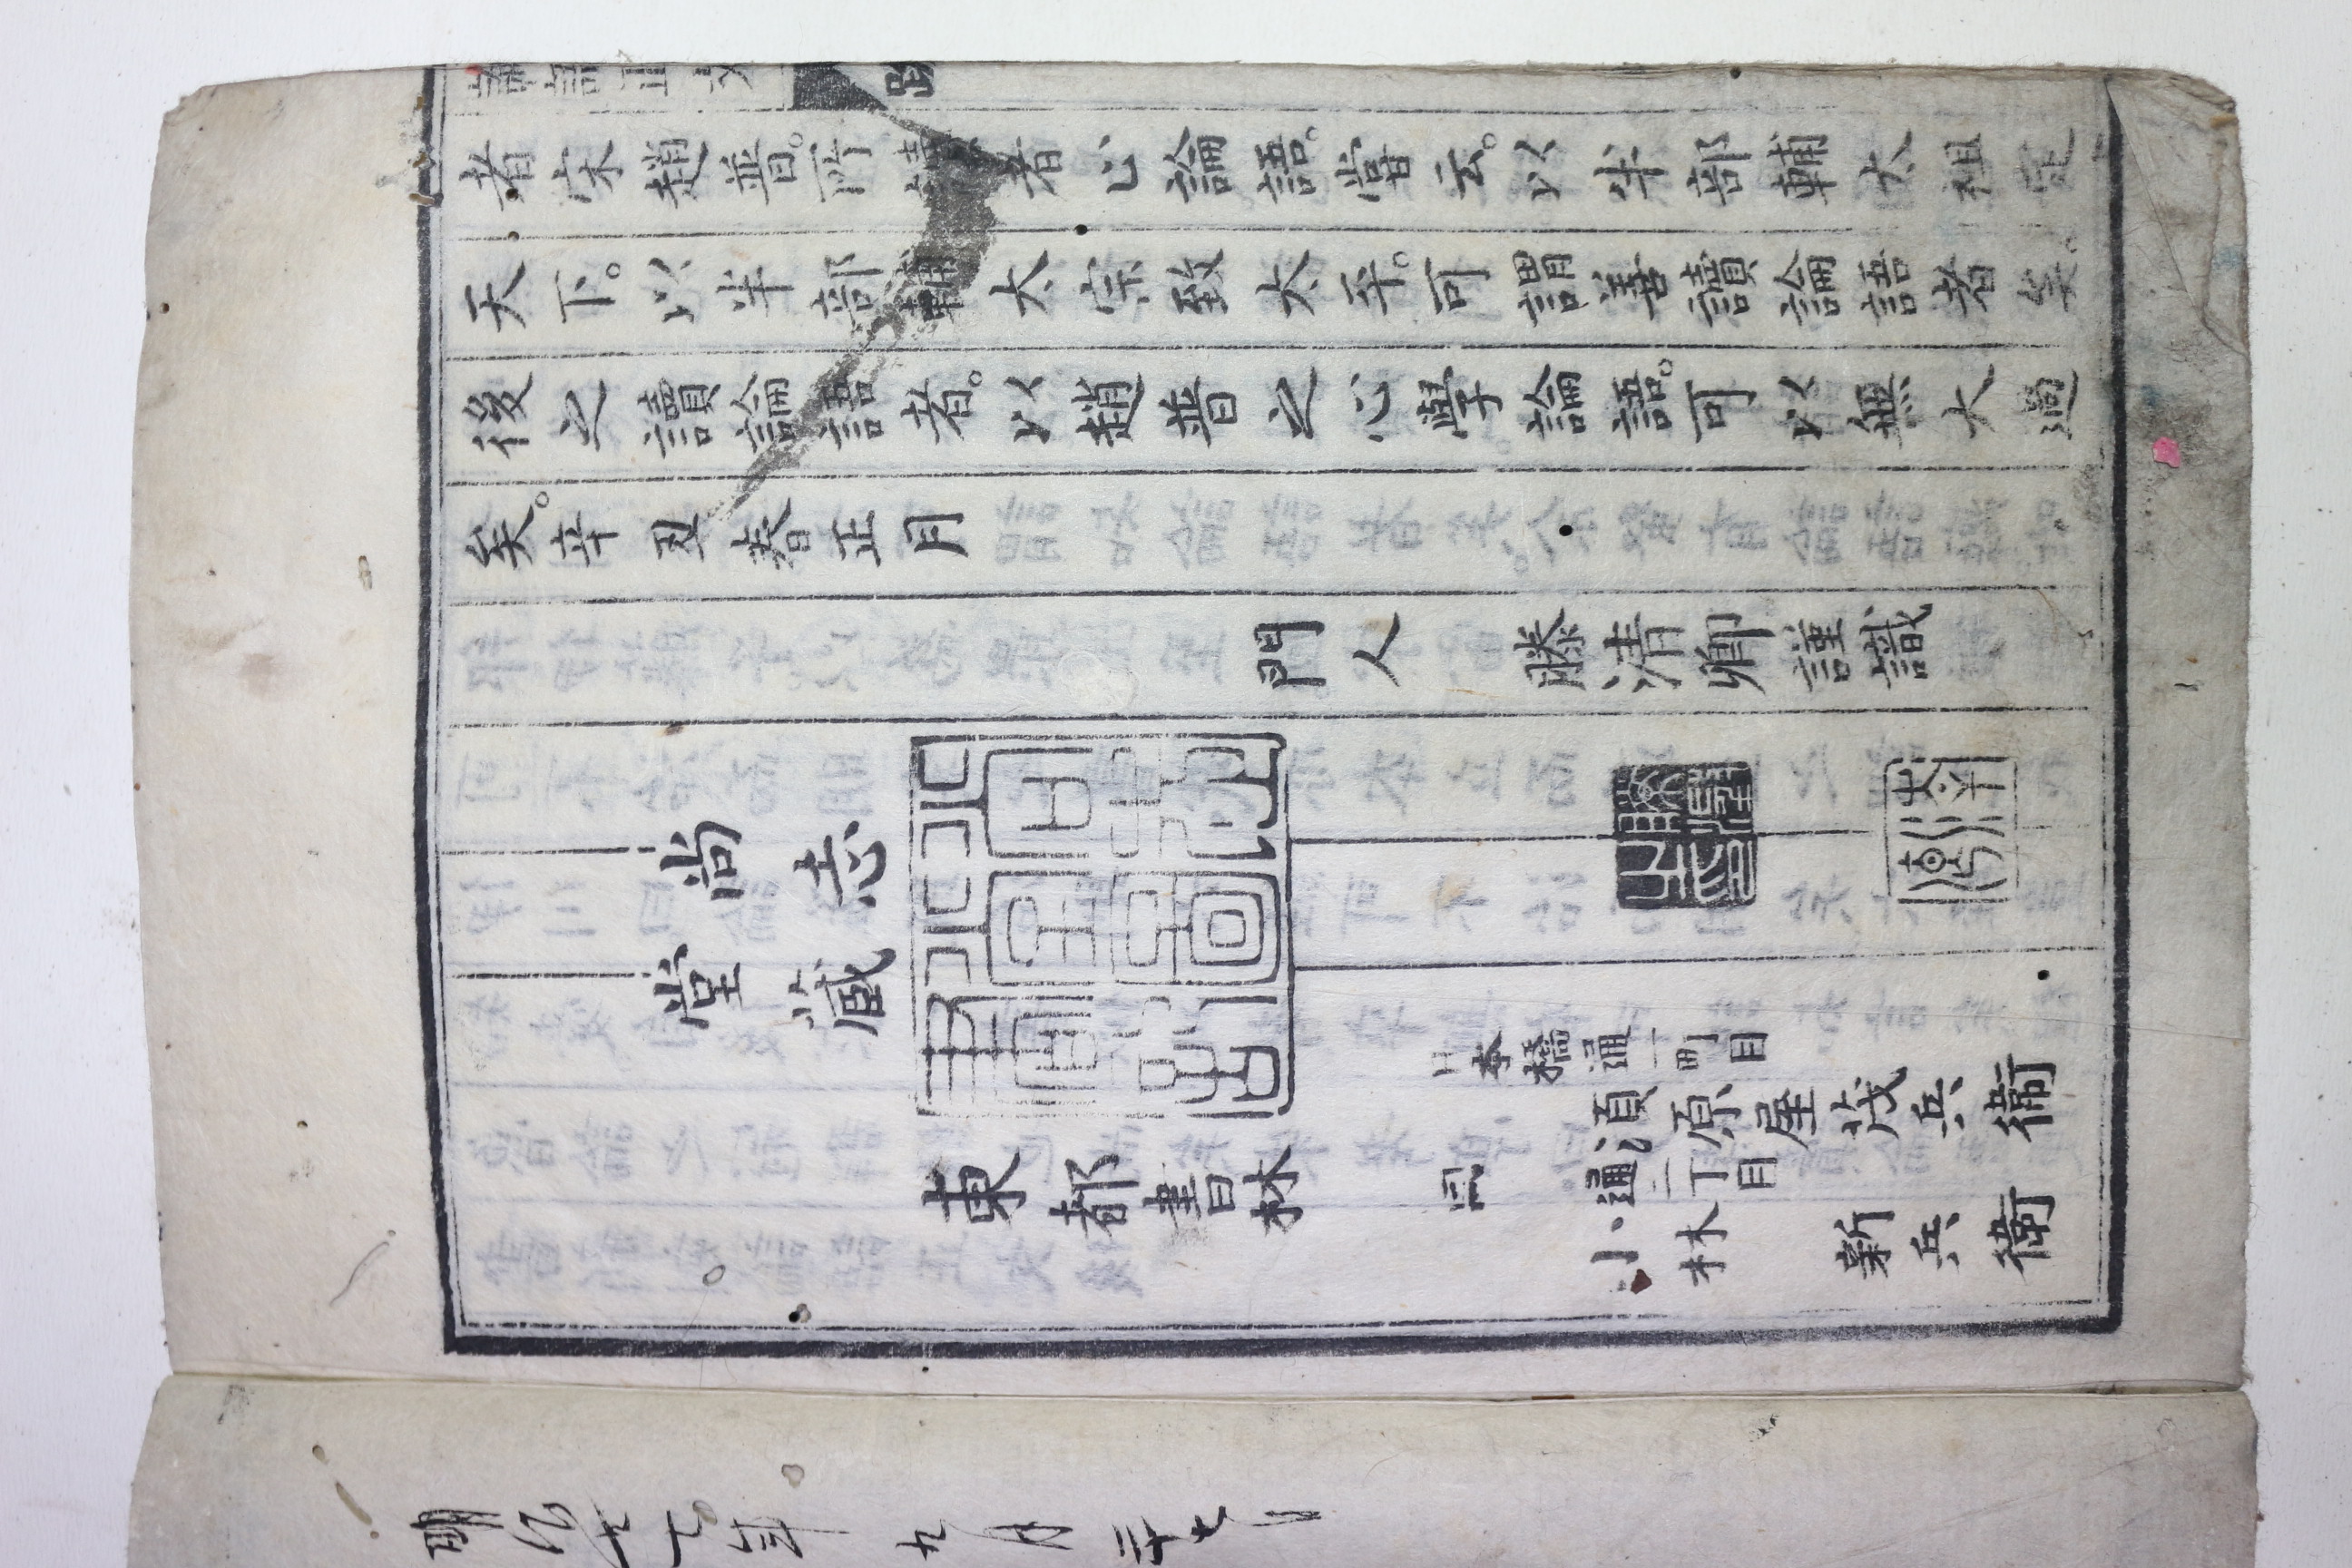 論語正文 跋
者宋趙普。所讀者止論語。嘗云。以半部輔太祖定
天下。以半部輔太宗致太平。可謂善讀論語者矣。
後之讀論語者。以趙普之心學論語。可以無大過
矣。辛丑春正月
門人 滕清卿謹識
尚志
堂蔵
尚志堂圖書記
東都書林
日本橋通一町目
須原屋茂兵衞
同 通二丁目
小林新兵衞
明治七年九月二十七日